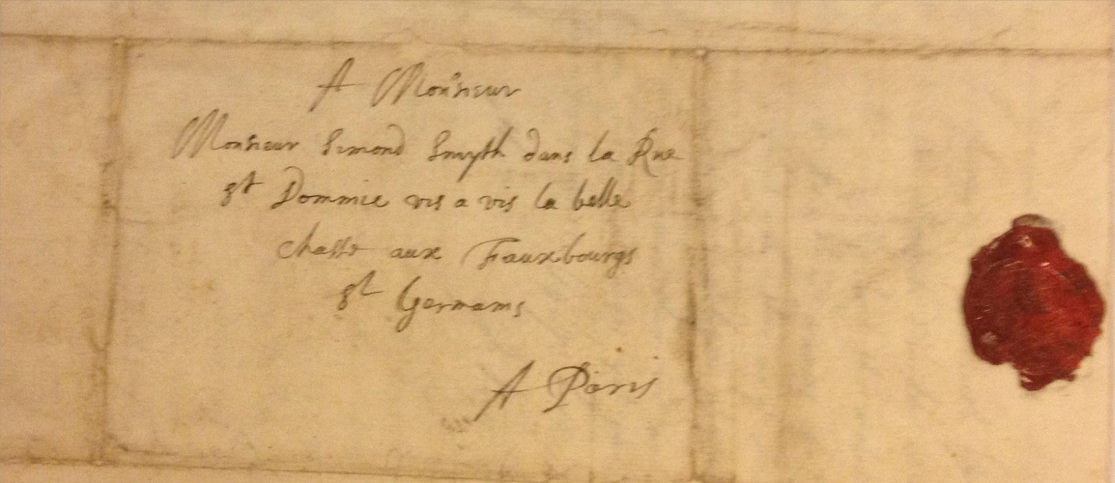 A Monsieur
Monsieur Simond Smyth dans la Rue
St Dommie vis a vis la belle
chasse aux Fauxbourgs
St Germains
A Paris